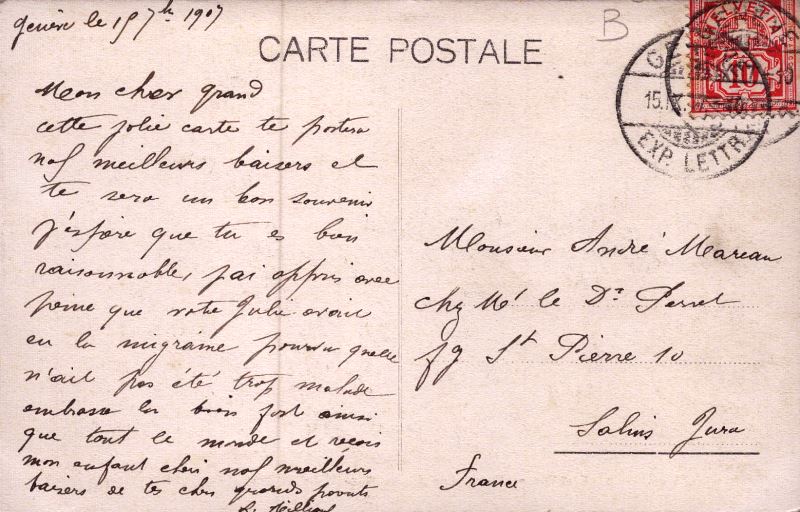 Genève le 15 7bre 1907
CARTE POSTALE
B
HELVETIA
10
15.IX.
EXP. LETTR.
Mon cher grand
cette jolie carte te portera
nos meilleurs baisers et
te sera un bon souvenir
j'espère que tu es bien
raisonnable, j'ai appris avec
peine que votre Julie avait
eu la migraine pourvu quelle
n'ait pas été trop malade
embrasse la bien fort ainsi
que tout le monde et reçois
mon enfant chéri nos meilleurs
baisers de tes chers grands parents
Monsieur André Mareau
chez Mr le Dr Perret
fg St Pierre 10
Salins Jura
France